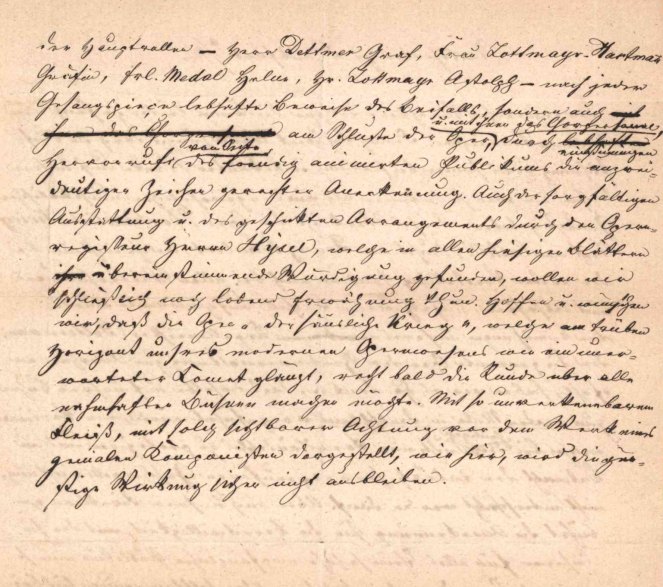 der Hauptrollen – Herr Dettmer Graf, Frau Lottmayr-Hartman
Gräfin, Frl. Medal Helene, Hr. Lottmayr Astolph – nach jeder
Gesangspieçe lebhafte Beweise des Beifalls, sondern auch mit
u. mit ihnen das Chorpersonal
am Schluße der Oper durch
von Seite einstimmigen
Hervorrufs des freudig animirten Publikums die unzwei-
deutigen Zeichen gerechter Anerkennung. Auch der sorgfältigen
Ausstattung u. des geschickten Arrangements durch den Opern-
regisseur Herrn Hysel, welche in allen hiesigen Blättern
übereinstimmende Würdigung gefunden, wollen wir
schließlich noch lobend Erwähnung thun. Hoffen u. wünschen
wir, daß die Oper „der häusliche Krieg“, welche am trüben
Horizont unseres modernen Opernwesens wie ein uner-
warteter Komet glänzt, recht bald die Runde über alle
nahmhaften Bühnen machen möchte. Mit so unverkennbarem
Fleiß, mit solch sichtbarer Achtung vor dem Werk eines
genialen Komponisten dargestellt, wie hier, wird die gün-
stige Wirkung sicher nicht ausbleiben.